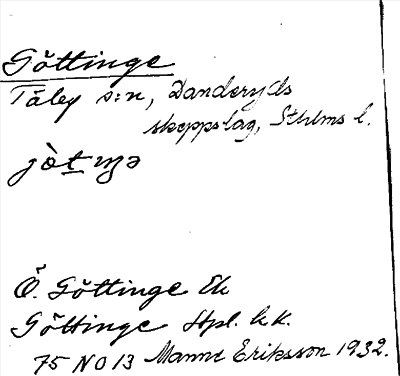 Göttinge
Täby s:n, Danderyds
skeppslag, Sthlms l.
jö̀t iŋə
Ö. Göttinge Ek
Göttinge Hpl. kk.
75 NO 13 Manne Eriksson 1932.